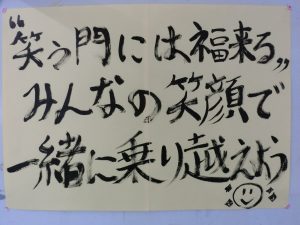 “笑う門には福来る„
みんなの笑顔で
一緒に乗り越えよう